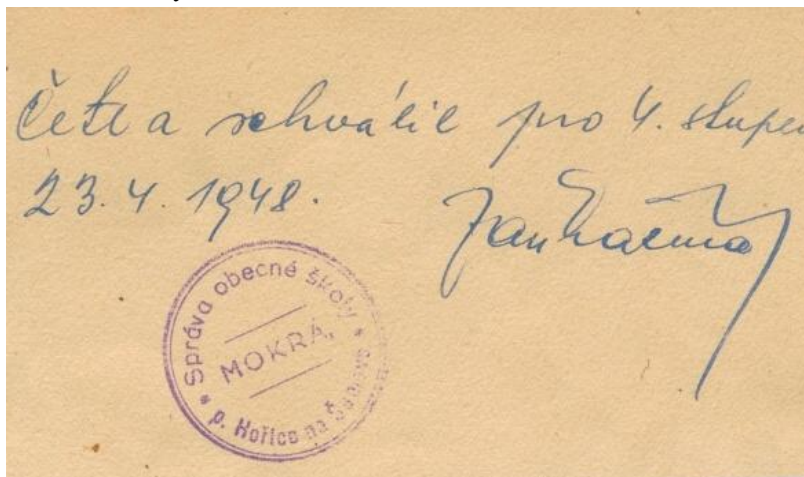 Četl a schválil pro 4. stupe
23.4.1948.
Správa obecné školy
MOKRÁ,
p. Hořice na